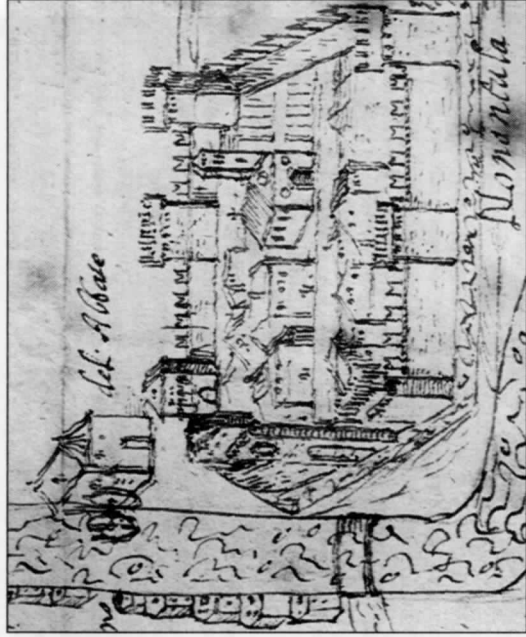 del Abbate
Nonantula